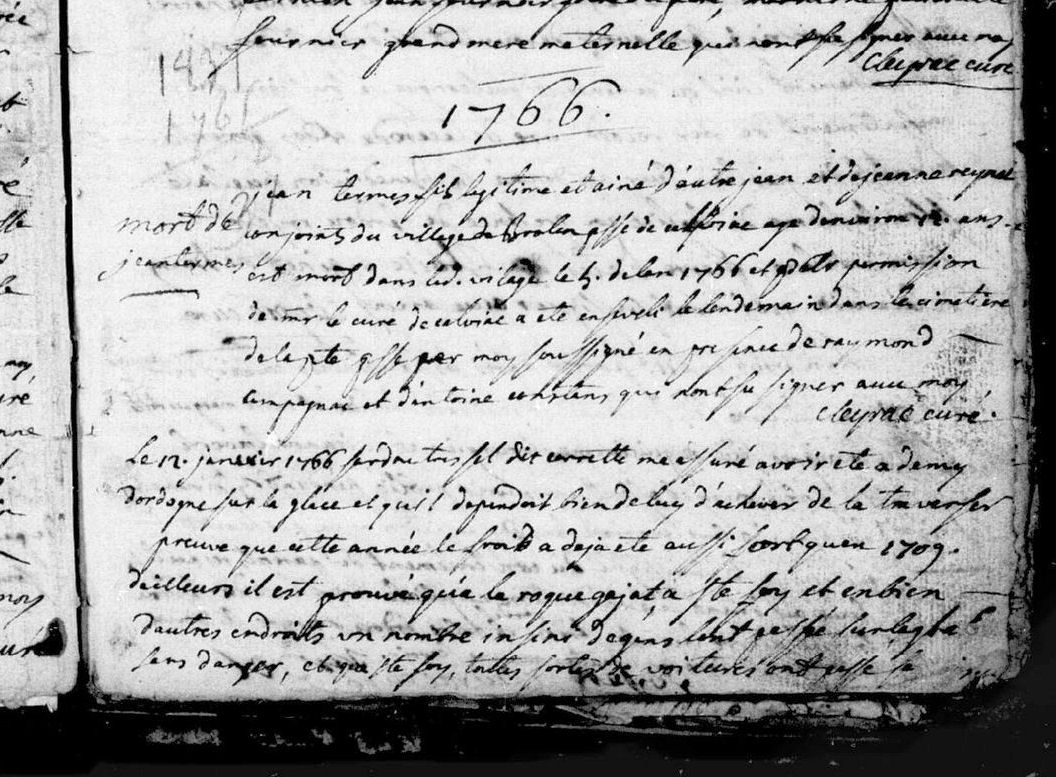 fournier grand mere maternelle qui n'ont su signer avec moy
Cleyrac curé
1766.
mort de
jean termes
jean termes fils legitime et ainé d'autre jean et de jeanne reynal
conjoints du village de psse de calviac age d'environ 12. ans
est mort dans led. vilage le 5. de lan 1766 et permission
de mr le curé de calviac a eté enseveli le lendemain dans le cimetière
de la pte psse par moy soussigné en presence de raymond
campagnac et d'antoine constans qui n'ont su signer avec moy
Cleyrac curé.
Le 12. janvier 1766 dit m'a assuré avoir eté a demy
dordogne sur la glace et qu'il dependoit bien de luy d'achever de la traverser
preuve que cette année le froid a deja eté aussi fort qu'en 1709.
d'ailleurs il est prouvé qu'a la roquegajat, a ste foy et en bien
d'autres endroits un nombre infini de gens sont passé sur la glace
sans danger, et qu'a ste foy, toutes sortes de voitures ont passé